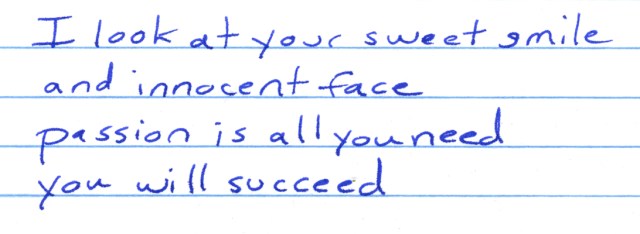 I look at your sweet smile
and innocent face
passion is all you need
you will succeed